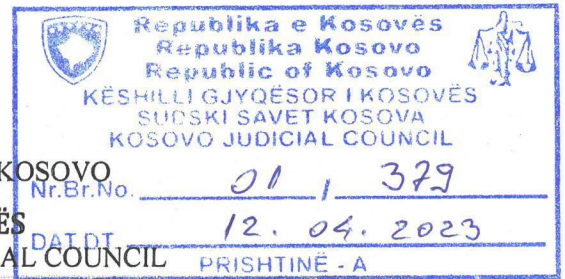 Republika e Kosovës
Republika Kosovo
Republic of Kosovo
KËSHILLI GJYQËSOR I KOSOVËS
SUDSKI SAVET KOSOVA
KOSOVO JUDICIAL COUNCIL
KOSOVO
Nr.Br.No. 01 / 379
ËS
DAT.DT. 12. 04. 2023
AL COUNCIL
PRISHTINË - A